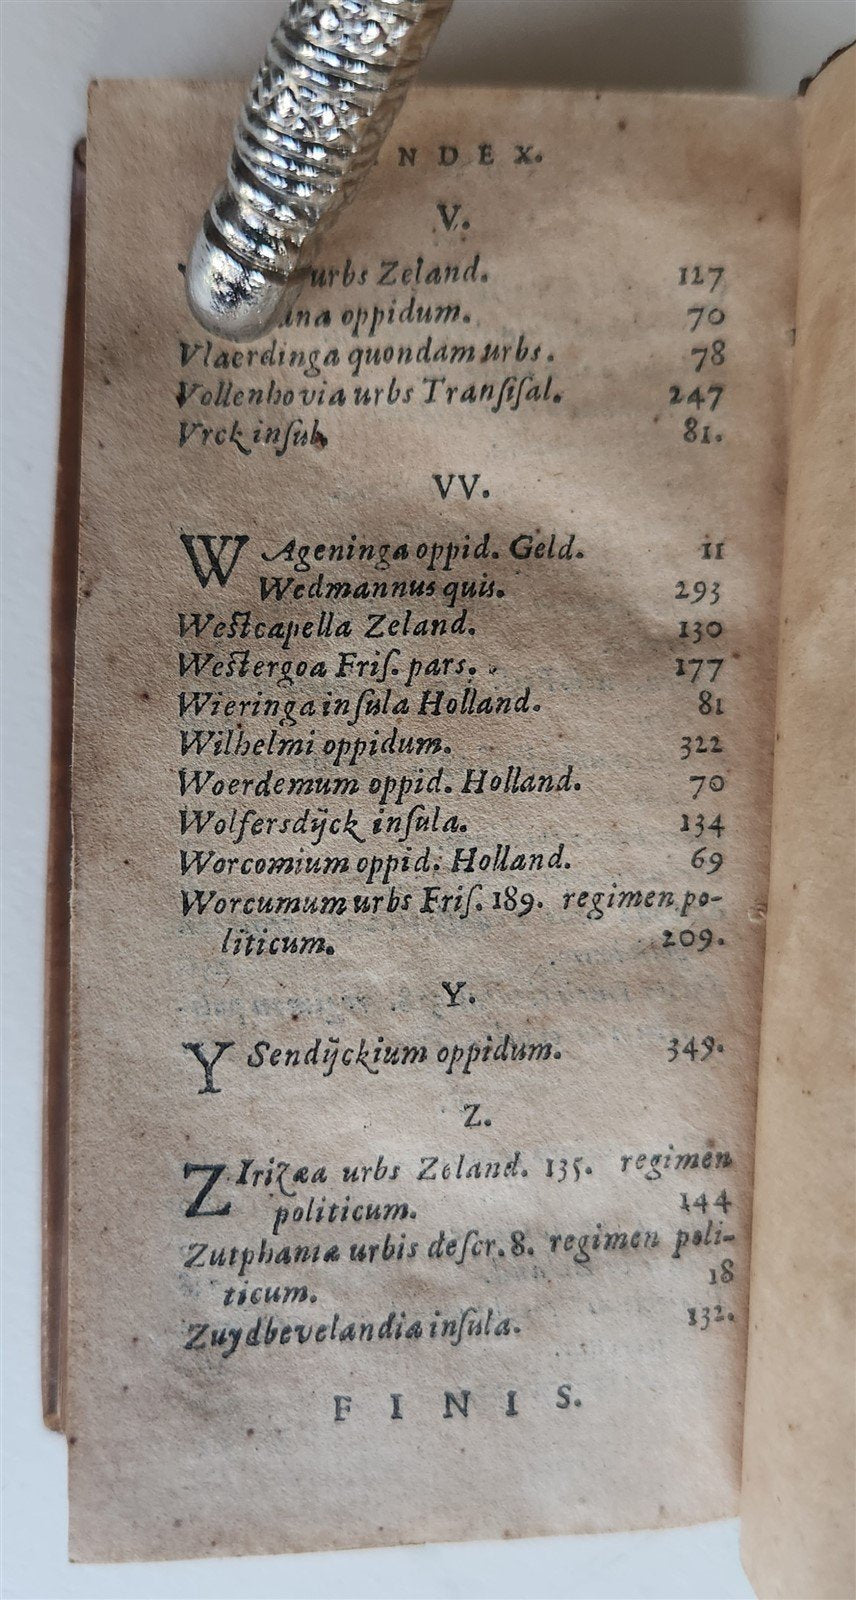 INDEX.
V.
urbs Zeland. 127
oppidum. 70
Vlaerdinga quondam urbs. 78
Vollenhovia urbs Tranſiſal. 247
Vrck inſul. 81.
VV.
WAgeninga oppid. Geld. 11
Wedmannus quis. 293
Westcapella Zeland. 130
Westergoa Friſ. pars. 177
Wieringa inſula Holland. 81
Wilhelmi oppidum. 322
Woerdemum oppid. Holland. 70
Wolfersdijck inſula. 134
Worcomium oppid. Holland. 69
Worcumum urbs Friſ. 189. regimen po-
liticum. 209.
Y.
YSendijckium oppidum. 349.
Z.
ZIrizæa urbs Zeland. 135. regimen
politicum. 144
Zutphaniæ urbis deſcr. 8. regimen poli-
ticum. 18
Zuydbevelandia inſula. 132.
FINIS.